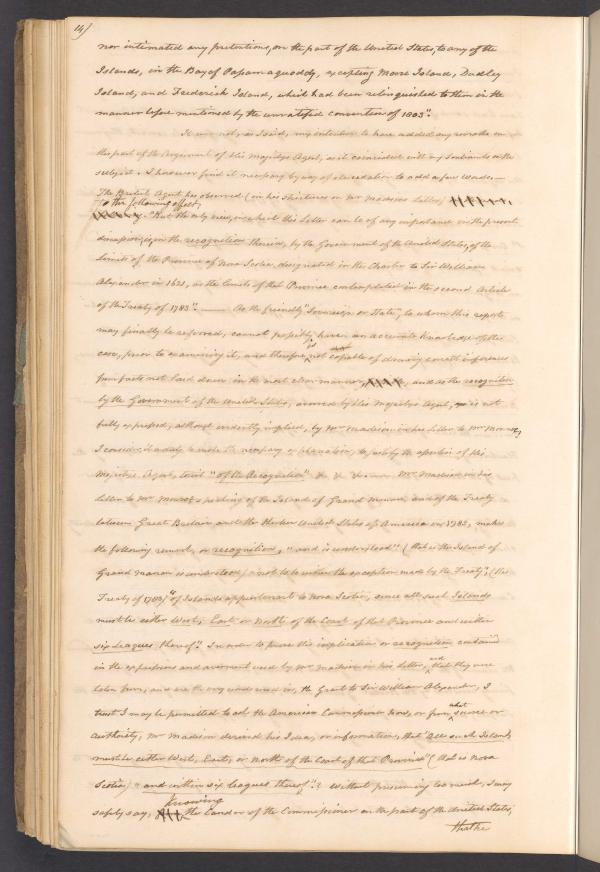 14)
nor intimated any pretentions, on the part of the United States, to any of the
Islands, in the Bay of Passamaquoddy, excepting Moose Island, Dudley
Island, and Frederick Island, which had been relinquished to them in the
manner before mentioned by the unratified convention of 1803".
It was not, as I said, my intention to have added any remarks on
this part of the Argument of His Majestys Agent, as it coincided with my Sentiments on the
subject. I however find it necessary by way of elucidation to add a few words—
The British Agent has observed (in his Strictures on Mr Madisons Letter)
to the following effect,
"But the only view, in which this Letter can be of any importance in the present
discussion, is, in the recognition therein, by the Government of the United States, of the
Limits of the Province of Nova Scotia, designated in the Charter to Sir William
Alexander in 1621, as the limits of that Province contemplated in the second Article
of the Treaty of 1783".—— As the friendly "Sovereign or State", to whom this report
may finally be referred, cannot possibly have an accurate knowledge of the
case, prior to examining it, and therefore, not capable of drawing correct inferences
from facts not laid down in the most clear manner, and as the recognition
by the Government of the United States, averred by His Majestys Agent, is not
fully expressed, although evidently implied, by Mr Madison in his Letter to Mr Monroe,
I consider it a duty to make the necessary explanation, to justify the assertion of His
Majestys Agent, to wit "of the Recognition" &c &c &c—— Mr Madison in his
Letter to Mr Monroe speaking of the Island of Grand Menan, and of the Treaty
between Great Britain and the United States of America in 1783, makes
the following remark, or recognition, "and is understood" (that is the Island of
Grand Manan is understood) "not to be within the exception made by the Treaty", (the
Treaty of 1783) "of Islands appertenant to Nova Scotia, since all such Islands
must be either West, East or North of the Coast of that Province and within
six Leagues thereof". In order to prove this implication or recognition contained
in the expressions and averment used by Mr Madison in his Letter, and that they were
taken from, and are the very words used in, the Grant to Sir William Alexander, I
trust I may be permitted to ask the American Commissioner how, or from what source or
authority, Mr Madison derived his Ideas, or information, that "all such Islands
must be either West, East, or North of the Coast of that Province" (that is Nova
Scotia) "and within six leagues thereof"? Without presuming too much, I may
safely say, Knowing the Candor of the Commissioner on the part of the United States,
that he